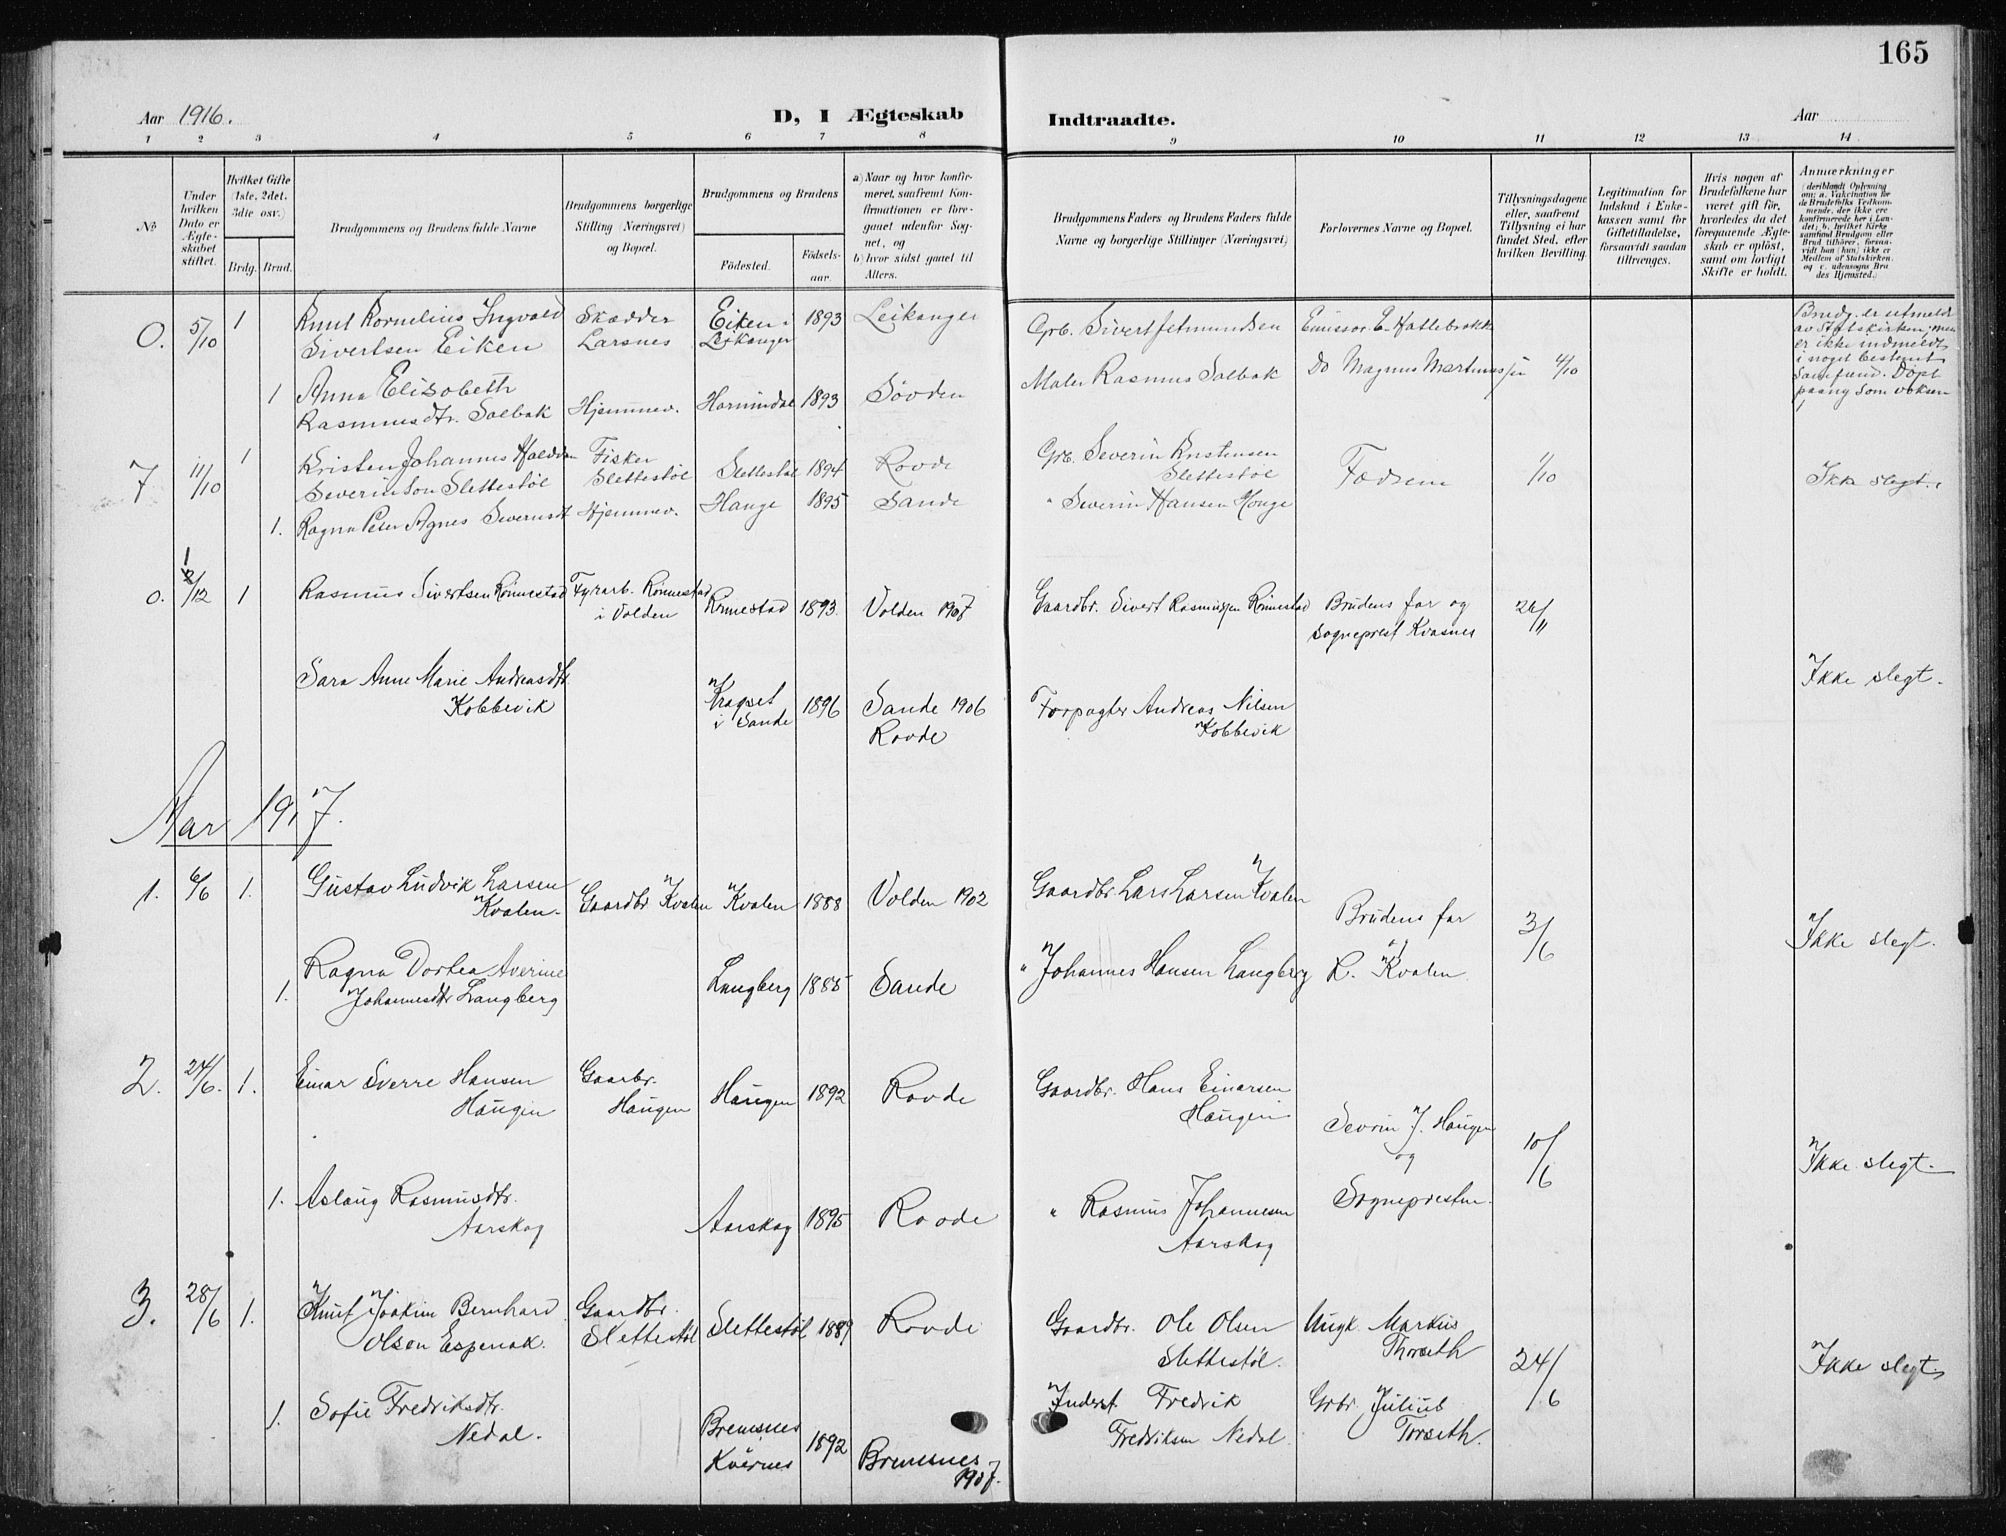 165
Aar 1916.
D, I Ægteskab
Indtraadte.
Aar
1 2 3 4 5 6 7 8 9 10 11 12 13 14
No
Under hvilken Dato er Ægteskabet stiftet.
Hvilket Gifte (1ste, 2det, 3die osv.)
Brdg. Brud.
Brudgommens og Brudens fulde Navne
Brudgommens borgerlige Stilling (Næringsvei) og Bopæl.
Brudgommens og Brudens
Fødested.
Fødselsaar.
a) Naar og hvor konfirmeret, saafremt Konfirmationen er foregaaet udenfor Sognet, og
b) hvor sidst gaaet til Alters.
Brudgommens Faders og Brudens Faders fulde Navne og borgerlige Stillinger (Næringsvei)
Forlovernes Navne og Bopæl.
Tillysningsdagene eller, saafremt Tillysning ei har fundet Sted, efter hvilken Bevilling.
Legitimation for Indskud i Enkekassen samt for Giftetilladelse, forsaavidt saadan tiltrænges.
Hvis nogen af Brudefolkene har været gift før, hvorledes da det foregaaende Ægteskab er opløst, samt om lovligt Skifte er holdt.
Anmærkninger
(deriblandt Oplysning om: a. Vakcination for de Brudefolks Vedkommende, der ikke ere konfirmerede her i Landet; b. hvilket Kirkesamfund Brudgom eller Brud tilhører, forsaavidt han (hun) ikke er Medlem af Statskirken, og c. udensogns Brudes Hjemsted.)
0. 5/10 1 Knut Kornelius Ingvald Skædder Eiken i 1893 Leikanger Grb. Sivert Jetmundsen Emissær E. Hattebrekke
Sivertsen Eiken Larsnes Leikanger
Brudg. er utmeldt
av Statskirken; men
er ikke indmeldt
i noget bestemt
samfund. Døpt
paany som voksen
1 Anna Elisabeth Maler Rasmus Salbak Do Magnus 4/10
Rasmusdtr. Salbak Hjemmev. Hornindal 1893 Søvden
7 11/10 1 Kristen Johannes Fisker Slettestøl 1894 Rovde Grb. Severin Kristensen 1/10 Ikke slegt.
Severinson Slettestøl Slettestøl Slettestøl
1. Ragna Agnes Severinsdt Hjemmev. Hauge 1895 Sande " Severin Hansen Hauge
0. 2/12 1 Rasmus Sivertsen Rönnestad Fyrarb. Rönnestad Rönnestad 1893. Volden 1907 Gaardbr. Sivert Rasmussen Rönnestad Brudens far og 26/11
i Volden sogneprest Kvasnes
Sara Anne Marie Andreasdtr. Kragset 1896 Sande 1906 Forpagter Andreas Nilsen Ikke slegt.
Kobbevik i Sande Rovde Kobbevik
Aar 1917.
1. 6/6 1. Gustav Ludvik Larsen Gaardbr Kvalen Kvalen 1888 Volden 1902 Gaardbr. Lars Larsen Kvalen Brudens far 3/6 Ikke slegt.
Kvalen.
1. Ragna Dortea Averine Langberg 1885 Sande " Johannes Hansen Langberg L. Kvalen
Johannesdtr Langberg
2. 24/6. 1. Einar Sverre Hansen Gaarbr. Haugen 1892 Rovde Gaardbr. Hans Einarsen Sevrin J. Haugen 10/6 Ikke slegt.
Haugen Haugen Haugen og
1. Aslaug Rasmusdtr. Aarskog 1895 Rovde " Rasmus Johannesen Sognepresten.
Aarskog Aarskog
3. 28/6 1. Knut Joakim Bernhard Gaardbr. Slettestøl 1889 Rovde Gaardbr. Ole Olsen Ungk. Markus 24/6 Ikke slegt.
Olsen Espenak. Slettestøl Slettestøl. Thorseth
1. Sofie Fredriksdtr. Bremsnes 1892 Bremsnes Inderst Fredrik Grbr. Julius
Nedal. Kvernes 1907. Fredriksen Nedal. Torseth.